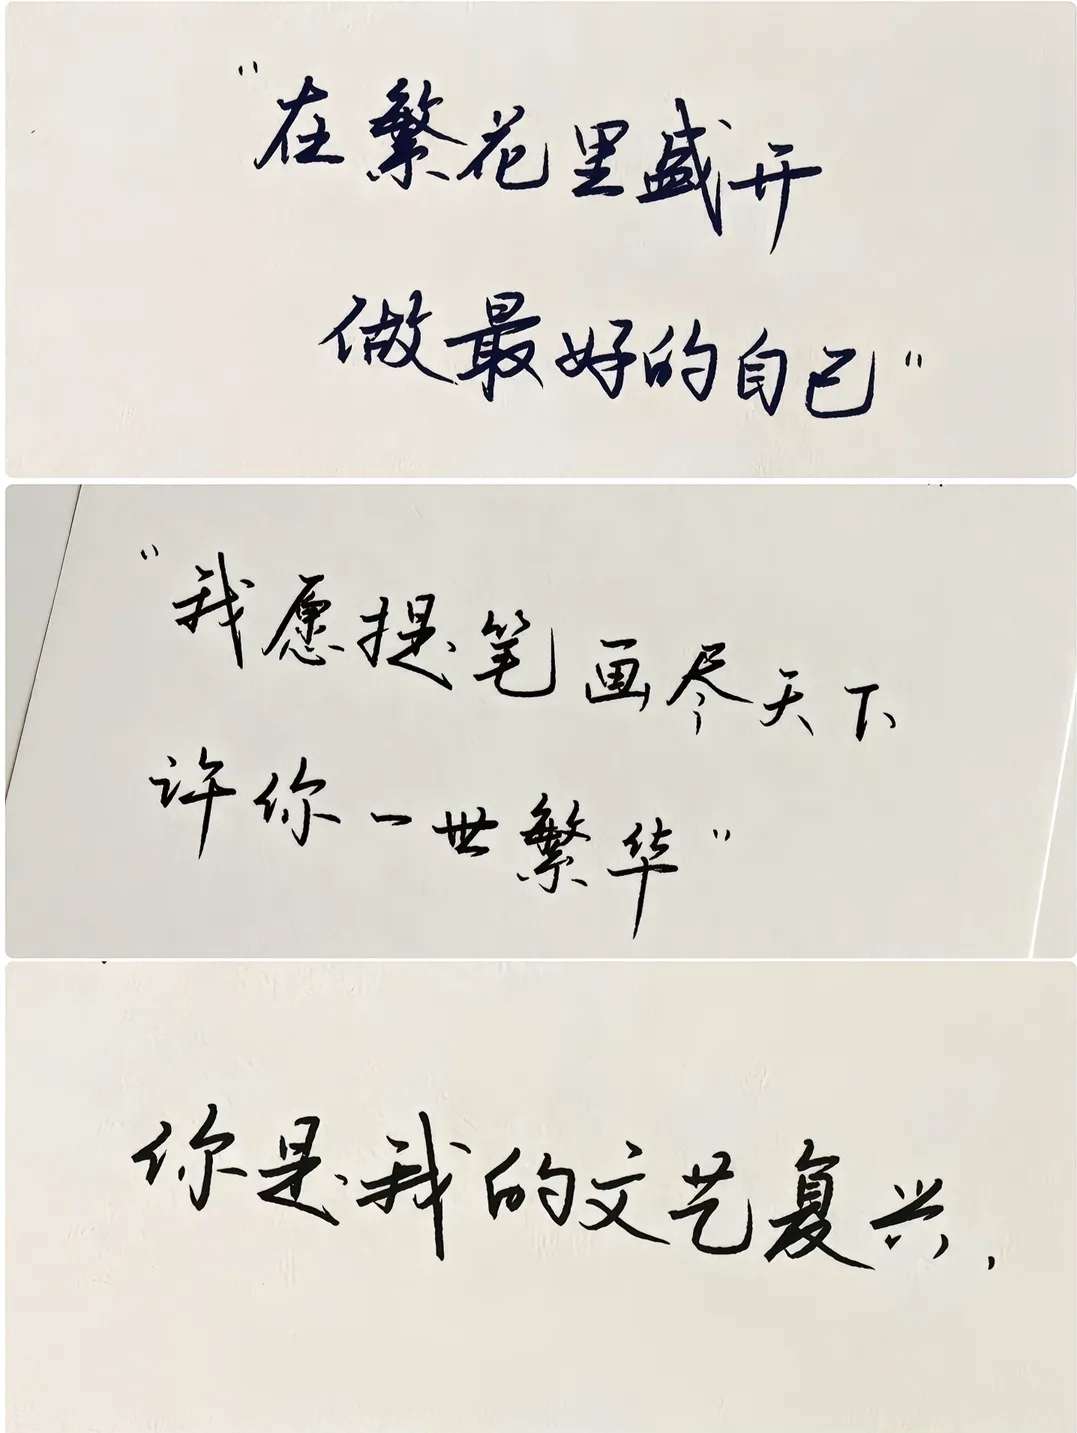 "在繁花里盛开
做最好的自己"
"我愿提笔画尽天下
许你一世繁华"
你是我的文艺复兴,